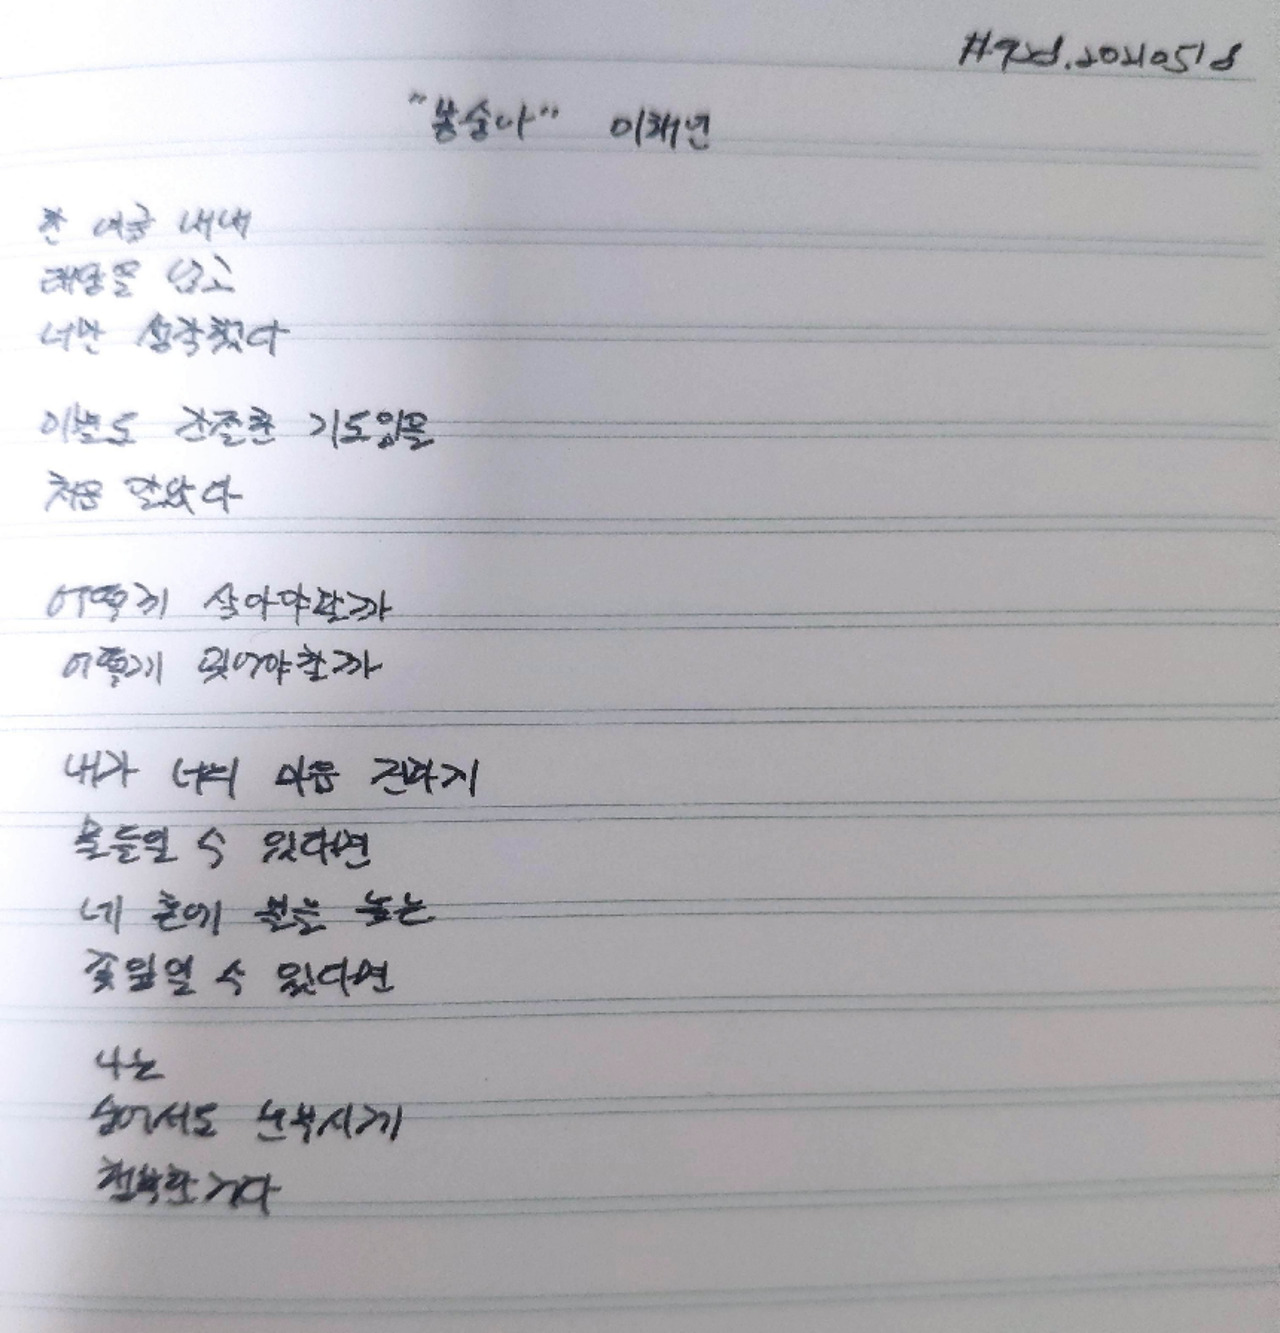 "봉숭아" 이해인
한 여름 내내
태양을 업고
너만 생각했다
이별도 간절한 기도임을
처음 알았다
어떻게 살아야 할까
어떻게 잊어야 할까
내가 너의 마음 진하게
물들일 수 있다면
네 혼에 불을 놓는
꽃잎일 수 있다면
나는
숨어서도 눈부시게
행복한 거다